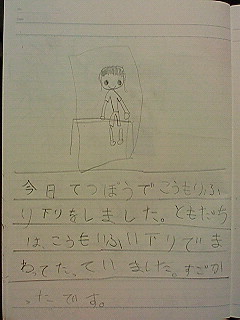 今日てつぼうでこうもりふ
り下りをしました。ともだち
は、こうもりふり下りでま
わってたっていました。すごか
ったです。